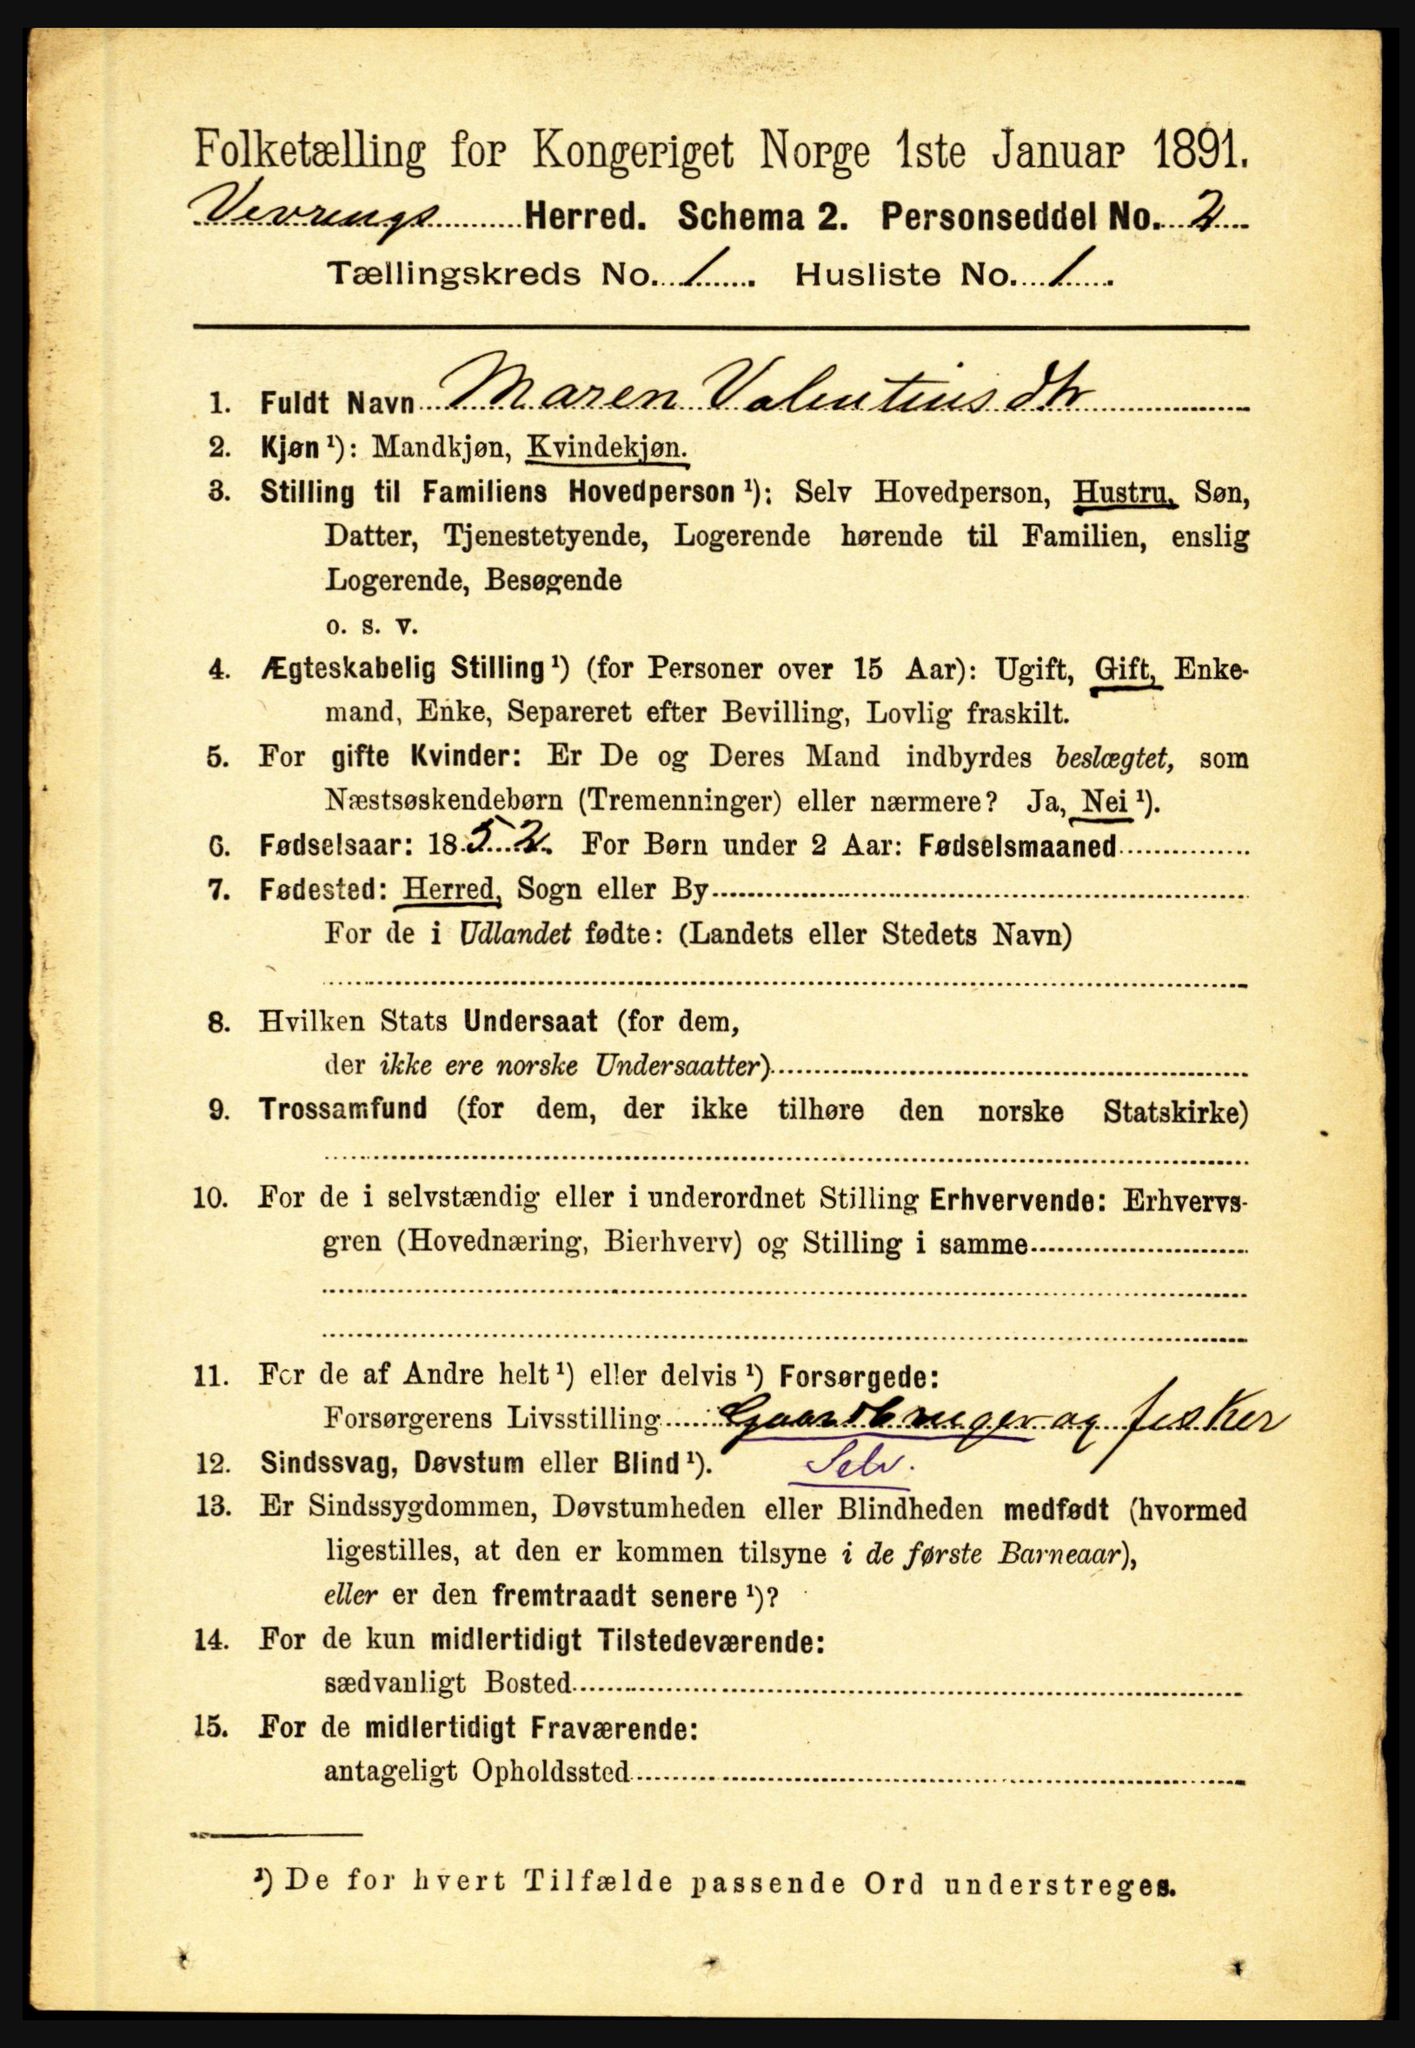 Folketælling for Kongeriget Norge 1ste Januar 1891.
Vevrings Herred. Schema 2. Personseddel No. 2
Tællingskreds No. 1. Husliste No. 1.
1. Fuldt Navn Maren Valentinsdtr
2. Kjøn ¹): Mandkjøn, Kvindekjøn.
3. Stilling til Familiens Hovedperson ¹): Selv Hovedperson, Hustru, Søn,
Datter, Tjenestetyende, Logerende hørende til Familien, enslig
Logerende, Besøgende
o. s. v.
4. Ægteskabelig Stilling ¹) (for Personer over 15 Aar): Ugift, Gift, Enke-
mand, Enke, Separeret efter Bevilling, Lovlig fraskilt.
5. For gifte Kvinder: Er De og Deres Mand indbyrdes beslægtet, som
Næstsøskendebørn (Tremenninger) eller nærmere? Ja, Nei ¹).
6. Fødselsaar: 1852. For Børn under 2 Aar: Fødselsmaaned
7. Fødested: Herred, Sogn eller By
For de i Udlandet fødte: (Landets eller Stedets Navn)
8. Hvilken Stats Undersaat (for dem,
der ikke ere norske Undersaatter)
9. Trossamfund (for dem, der ikke tilhøre den norske Statskirke)
10. For de i selvstændig eller i underordnet Stilling Erhvervende: Erhvervs-
gren (Hovednæring, Bierhverv) og Stilling i samme
11. For de af Andre helt ¹) eller delvis ¹) Forsørgede:
Forsørgerens Livsstilling Gaardbruger og fisker
12. Sindssvag, Døvstum eller Blind ¹). Selv.
13. Er Sindssygdommen, Døvstumheden eller Blindheden medfødt (hvormed
ligestilles, at den er kommen tilsyne i de første Barneaar),
eller er den fremtraadt senere ¹)?
14. For de kun midlertidigt Tilstedeværende:
sædvanligt Bosted
15. For de midlertidigt Fraværende:
antageligt Opholdssted
¹) De for hvert Tilfælde passende Ord understreges.